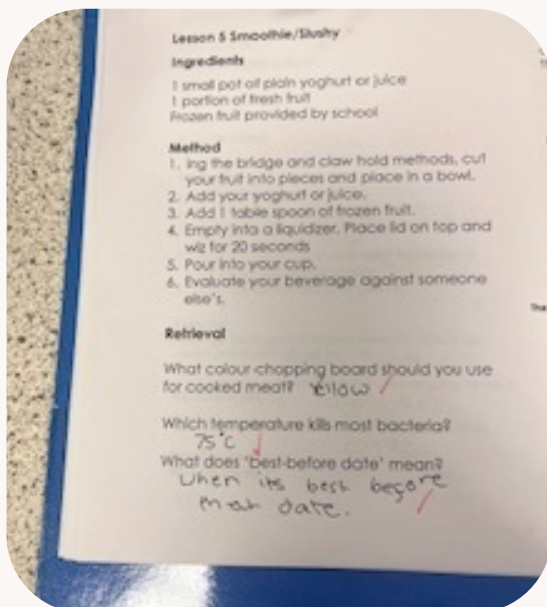 Lesson 5 Smoothie/Slushy
Ingredients
1 small pot of plain yoghurt or juice
1 portion of fresh fruit
Frozen fruit provided by school
Method
1. ing the bridge and claw hold methods, cut
your fruit into pieces and place in a bowl.
2. Add your yoghurt or juice.
3. Add 1 table spoon of frozen fruit.
4. Empty into a liquidizer. Place lid on top and
wiz for 20 seconds
5. Pour into your cup.
6. Evaluate your beverage against someone
else's.
Retrieval
What colour chopping board should you use
for cooked meat? yellow
Which temperature kills most bacteria?
75°C
What does 'best-before date' mean?
when its best before
date.
The